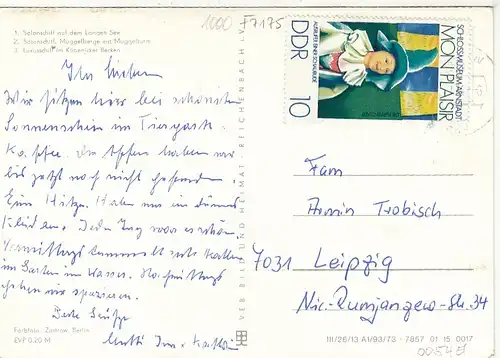 1000 F7175
1. Salonschiff auf dem Langen See
2. Salonschiff, Müggelberge mit Müggelturm
3. Salonschiff im Köpenicker Becken
Ihr Lieben
Wir sitzen hier bei schönstem
Sonnenschein im Tierpark
Kaffee. Die Affen haben wir
bis jetzt noch nicht gefunden.
Eine Hitze. Haben nur ein dünnes
Kleid an. Jeden Tag war es schön.
Vormittags tummelt sich
im Garten im Wasser. Nachmittags
gehen wir spazieren.
Beste Grüße
Mutti
Farbfoto: Zentrose, Berlin
EVP 0,20 M
VEB BILD UND HEIMAT REICHENBACH I. V.
SCHLOSSMUSEUM ARNSTADT
MON PLAISIR
AUSRUFER EINER SCHAUBUDE
DDR 10
Fam
Armin Trobisch
7031 Leipzig
Nic.-Rumjanzew-Str. 34
III/26/13 A1/93/73 - 7857 01 15 0017